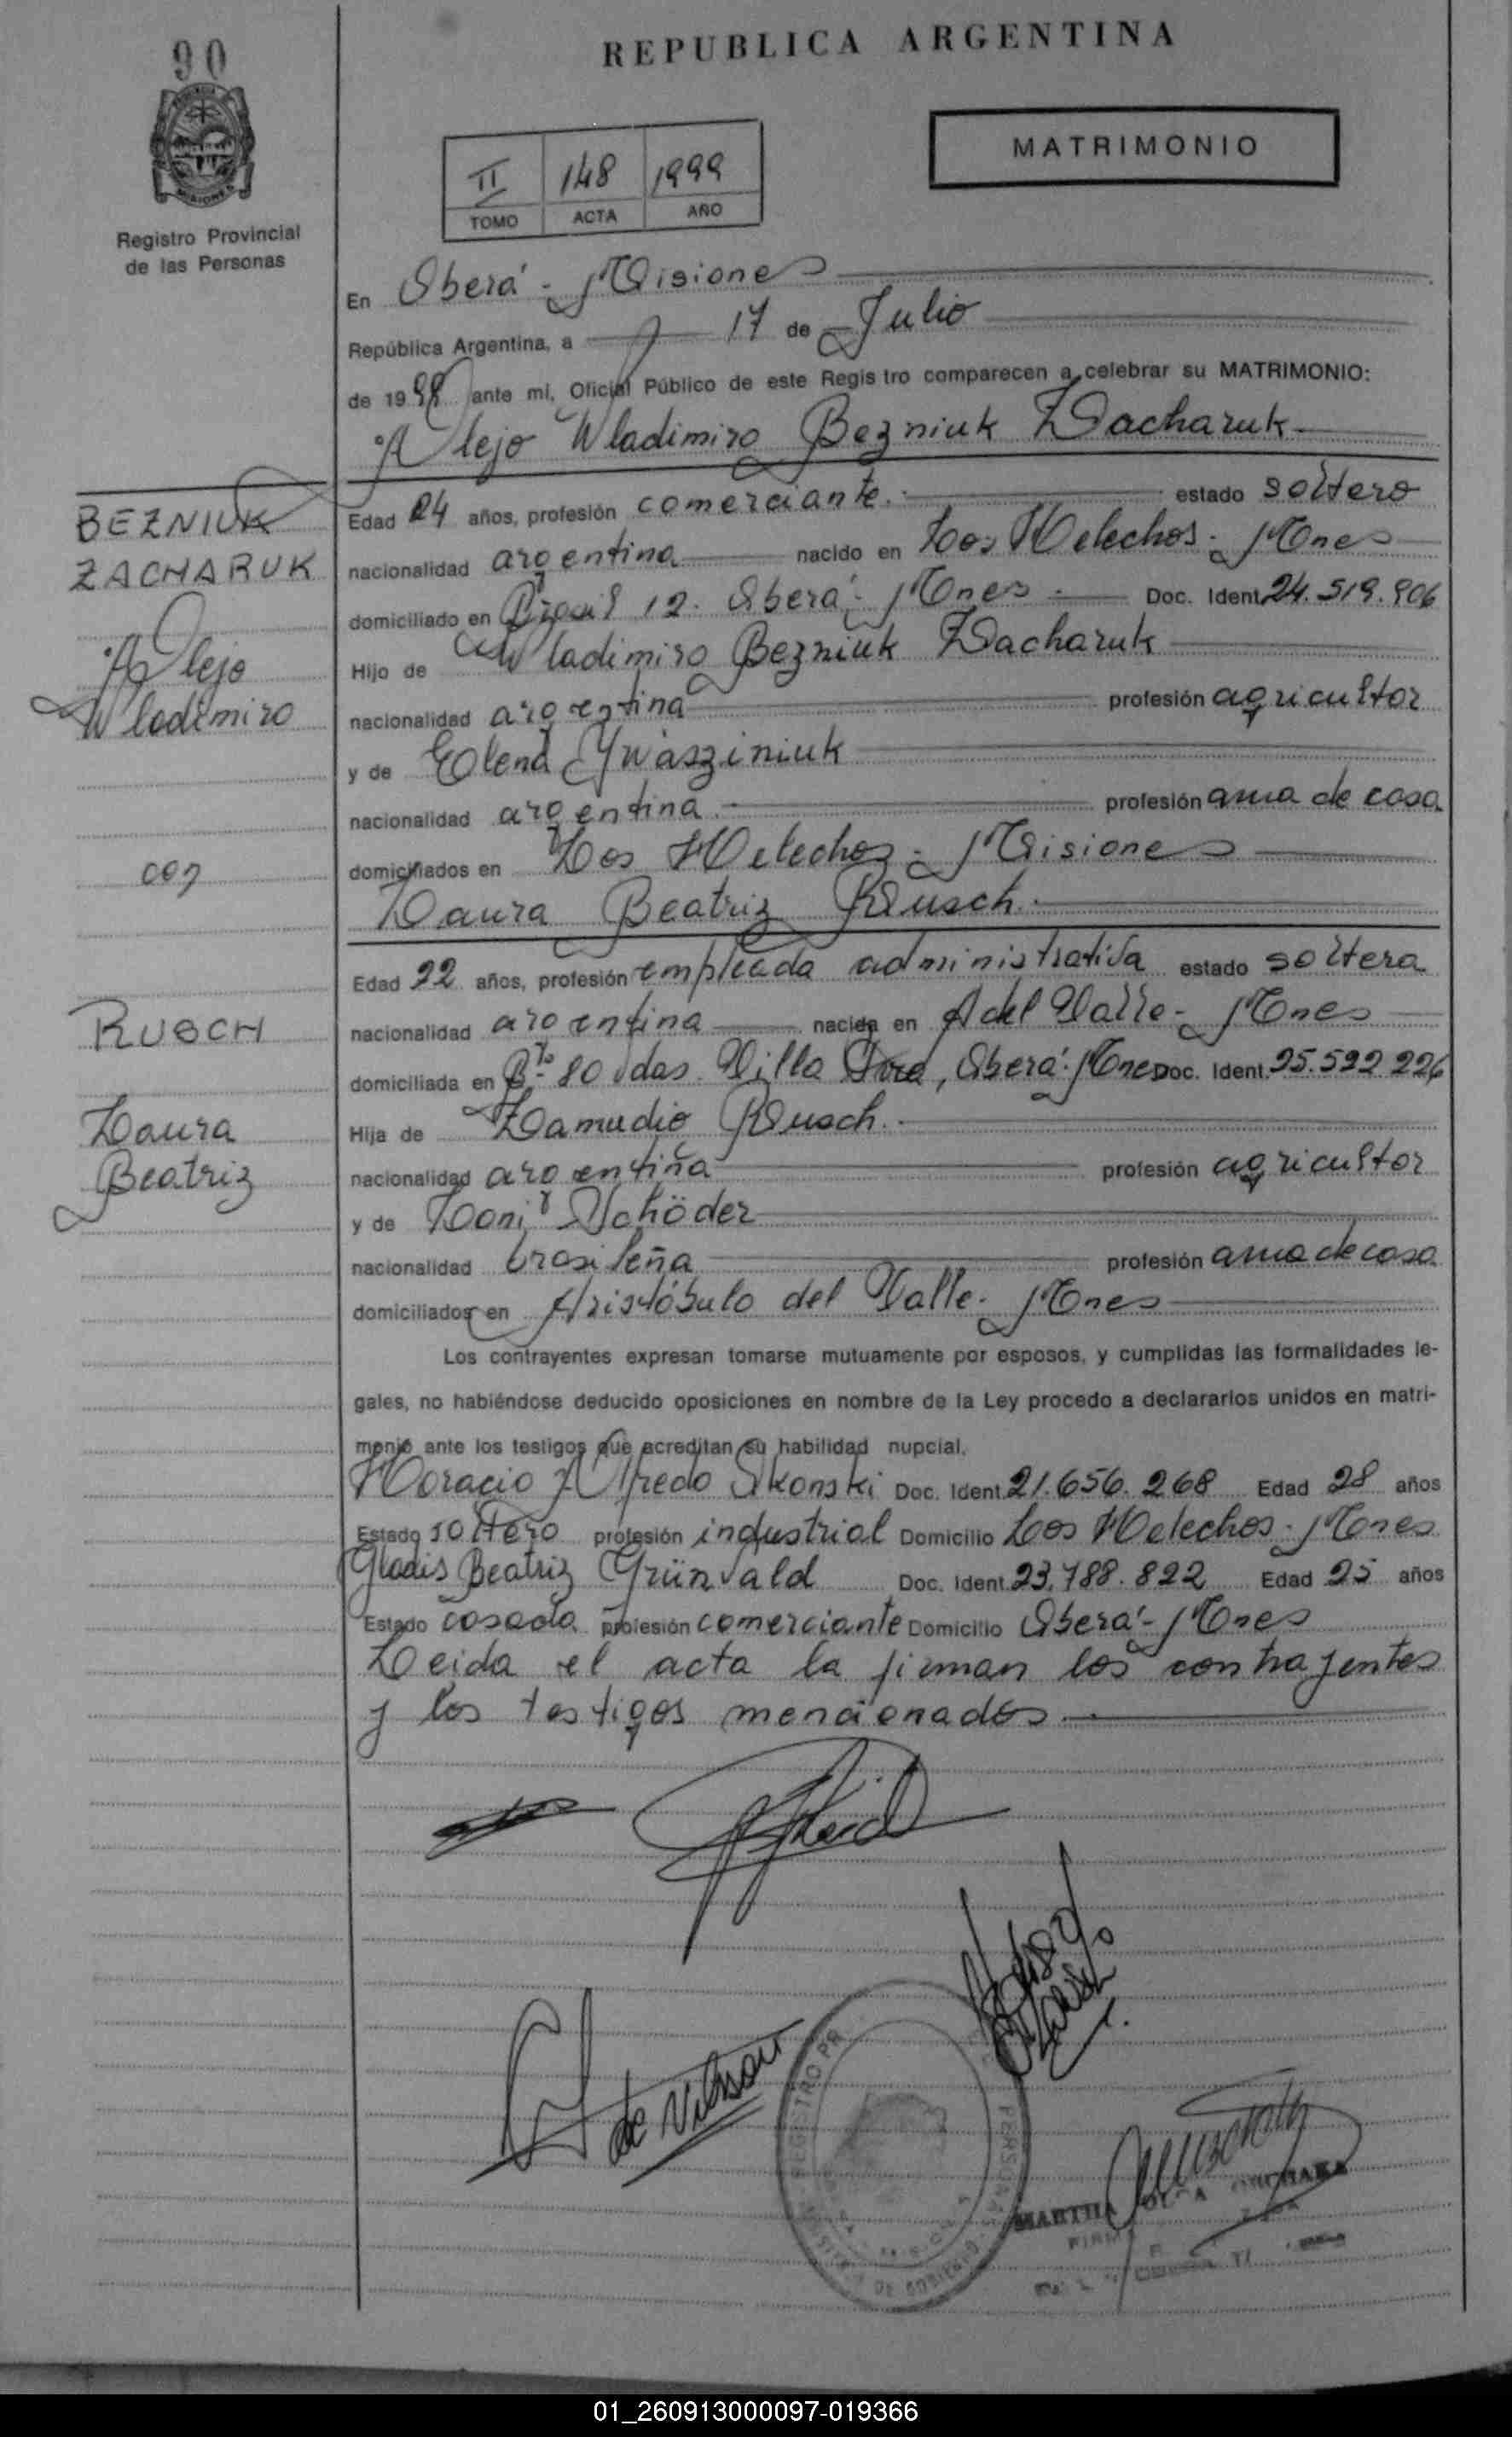 90
REPUBLICA ARGENTINA
MATRIMONIO
II 148 1999
TOMO ACTA AÑO
Registro Provincial
de las Personas
En Oberá - Misiones
República Argentina, a 17 de Julio
de 19 ante mí, Oficial Público de este Registro comparecen a celebrar su MATRIMONIO:
Alejo Wladimiro Bezniuk Zacharuk
BEZNIUK
ZACHARUK
Alejo
Wladimiro
con
Edad 24 años, profesión comerciante. estado soltero
nacionalidad argentina nacido en Los Helechos - Mnes
domiciliado en Brasil 12. Oberá - Mnes. Doc. Ident. 24.519.906
Hijo de Wladimiro Bezniuk Zacharuk
nacionalidad argentina profesión agricultor
y de Elena Ywasziniuk
nacionalidad argentina. profesión ama de casa
domiciliados en Los Helechos - Misiones
Laura Beatriz Rusch.
RUSCH
Laura
Beatriz
Edad 22 años, profesión empleada administrativa estado soltera
nacionalidad argentina nacida en A del Valle - Mnes
domiciliada en Bº 80 Vdas. Villa, Oberá - Mnes Doc. Ident. 25.522.226
Hija de Zamudio Rusch.
nacionalidad argentina profesión agricultor
y de Loni Schöder
nacionalidad brasileña profesión ama de casa
domiciliados en Aristóbulo del Valle - Mnes
Los contrayentes expresan tomarse mutuamente por esposos, y cumplidas las formalidades le-
gales, no habiéndose deducido oposiciones en nombre de la Ley procedo a declararlos unidos en matri-
monio ante los testigos que acreditan su habilidad nupcial.
Horacio Alfredo Skonski Doc. Ident. 21.656.268 Edad 28 años
Estado soltero profesión industrial Domicilio Los Helechos - Mnes
Gladis Beatriz Grünvald Doc. Ident. 23.788.822 Edad 25 años
Estado casada profesión comerciante Domicilio Oberá - Mnes
Leida el acta la firman los contrayentes
y los testigos mencionados.
REGISTRO PR
DE GOBIERNO
MARTHA OLGA
01_260913000097-019366